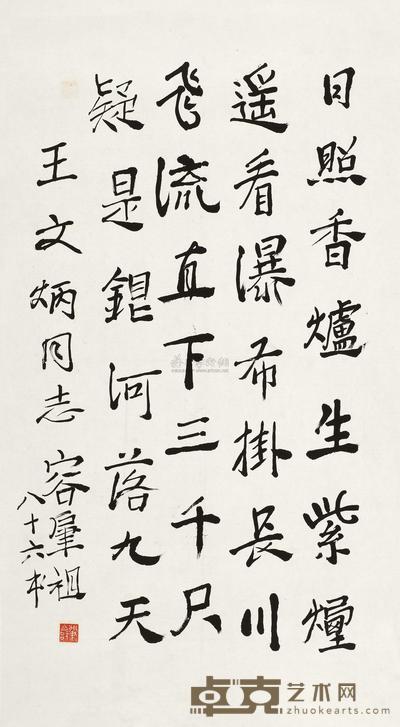 日照香爐生紫煙
遙看瀑布掛長川
飛流直下三千尺
疑是銀河落九天
王文炳同志
容肇祖
八十六年
卓克艺术网
zhuokearts.com